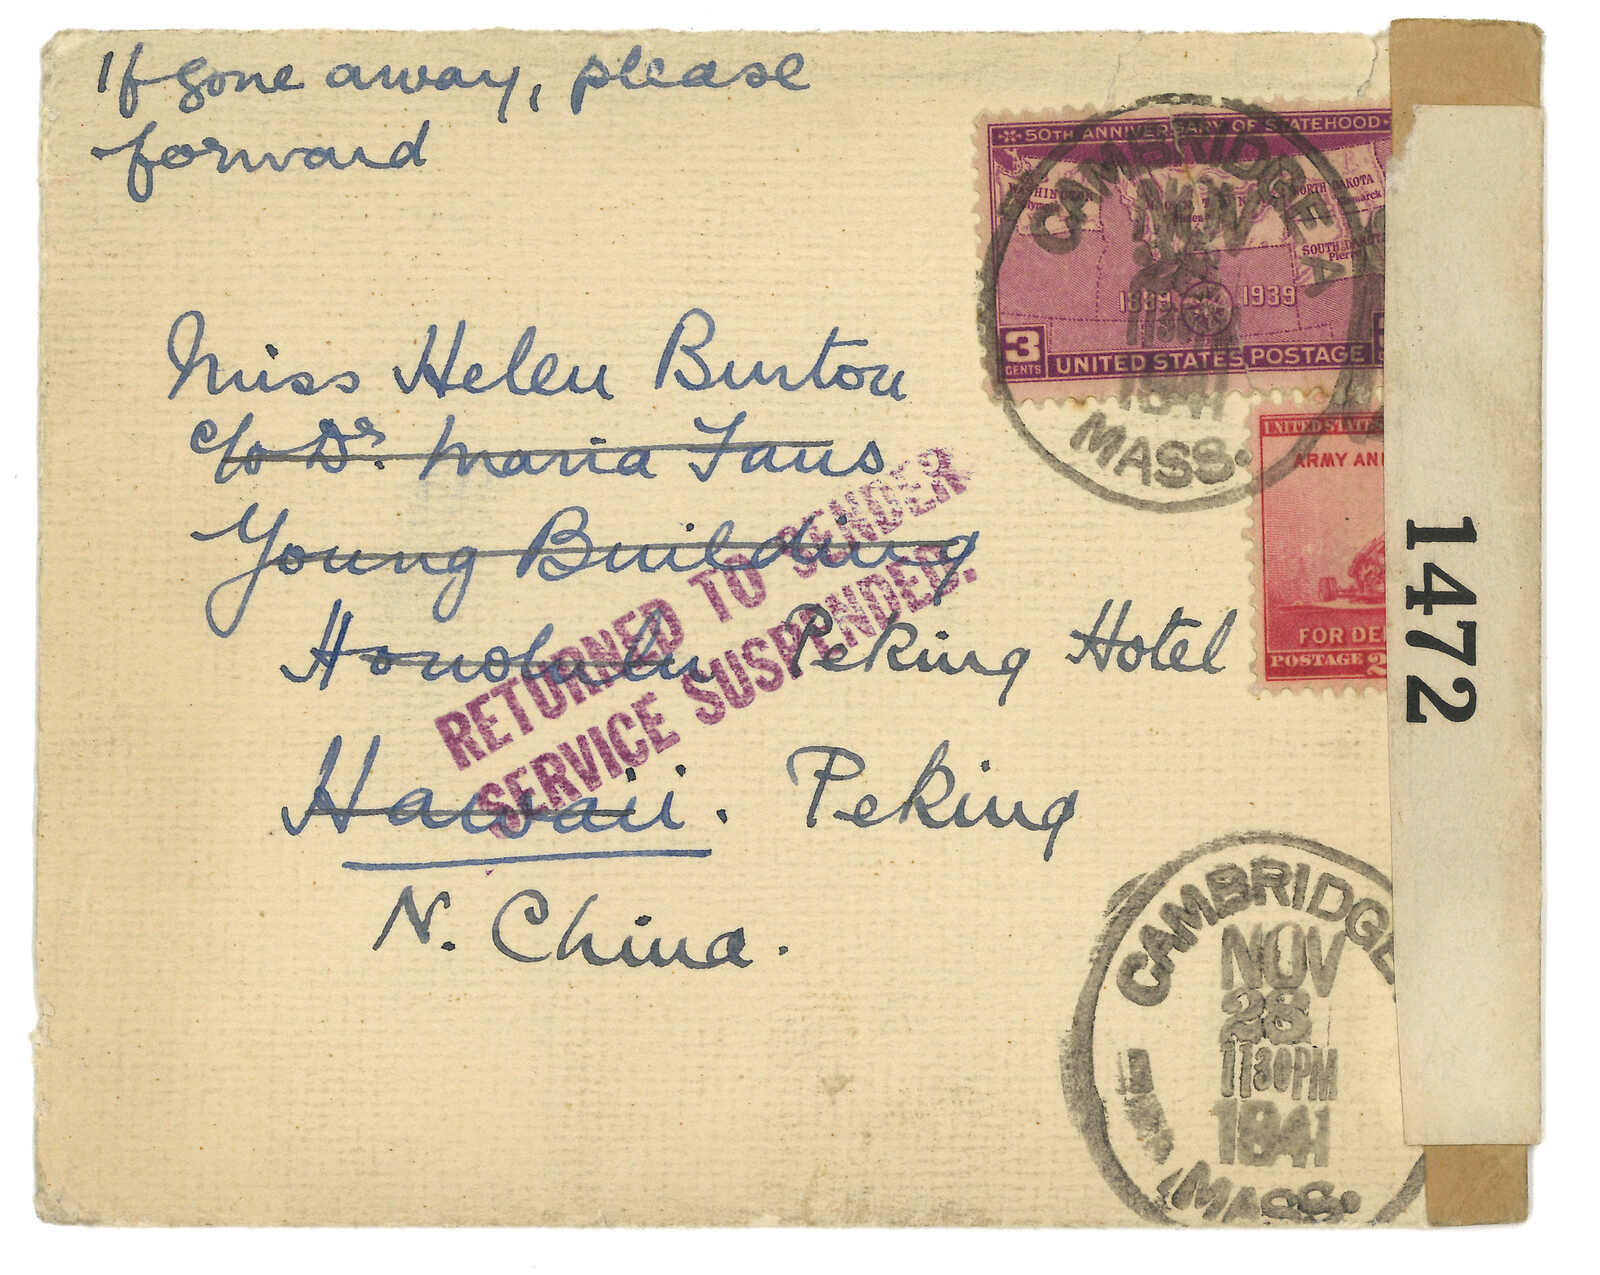 If gone away, please
forward
50TH ANNIVERSARY OF STATEHOOD
WASHINGTON
MONTANA
NORTH DAKOTA
SOUTH DAKOTA
1889 1939
3
CENTS
UNITED STATES POSTAGE
CAMBRIDGE A
NOV
1941
MASS.
UNITED STATES
ARMY AN
FOR DE
POSTAGE 2
1472
Miss Helen Burton
c/o Dr. Maria Faus
Young Building
Honolulu Peking Hotel
Hawaii. Peking
N. China.
RETURNED TO SENDER
SERVICE SUSPENDED.
CAMBRIDGE
NOV
26
11 30 PM
1941
MASS.